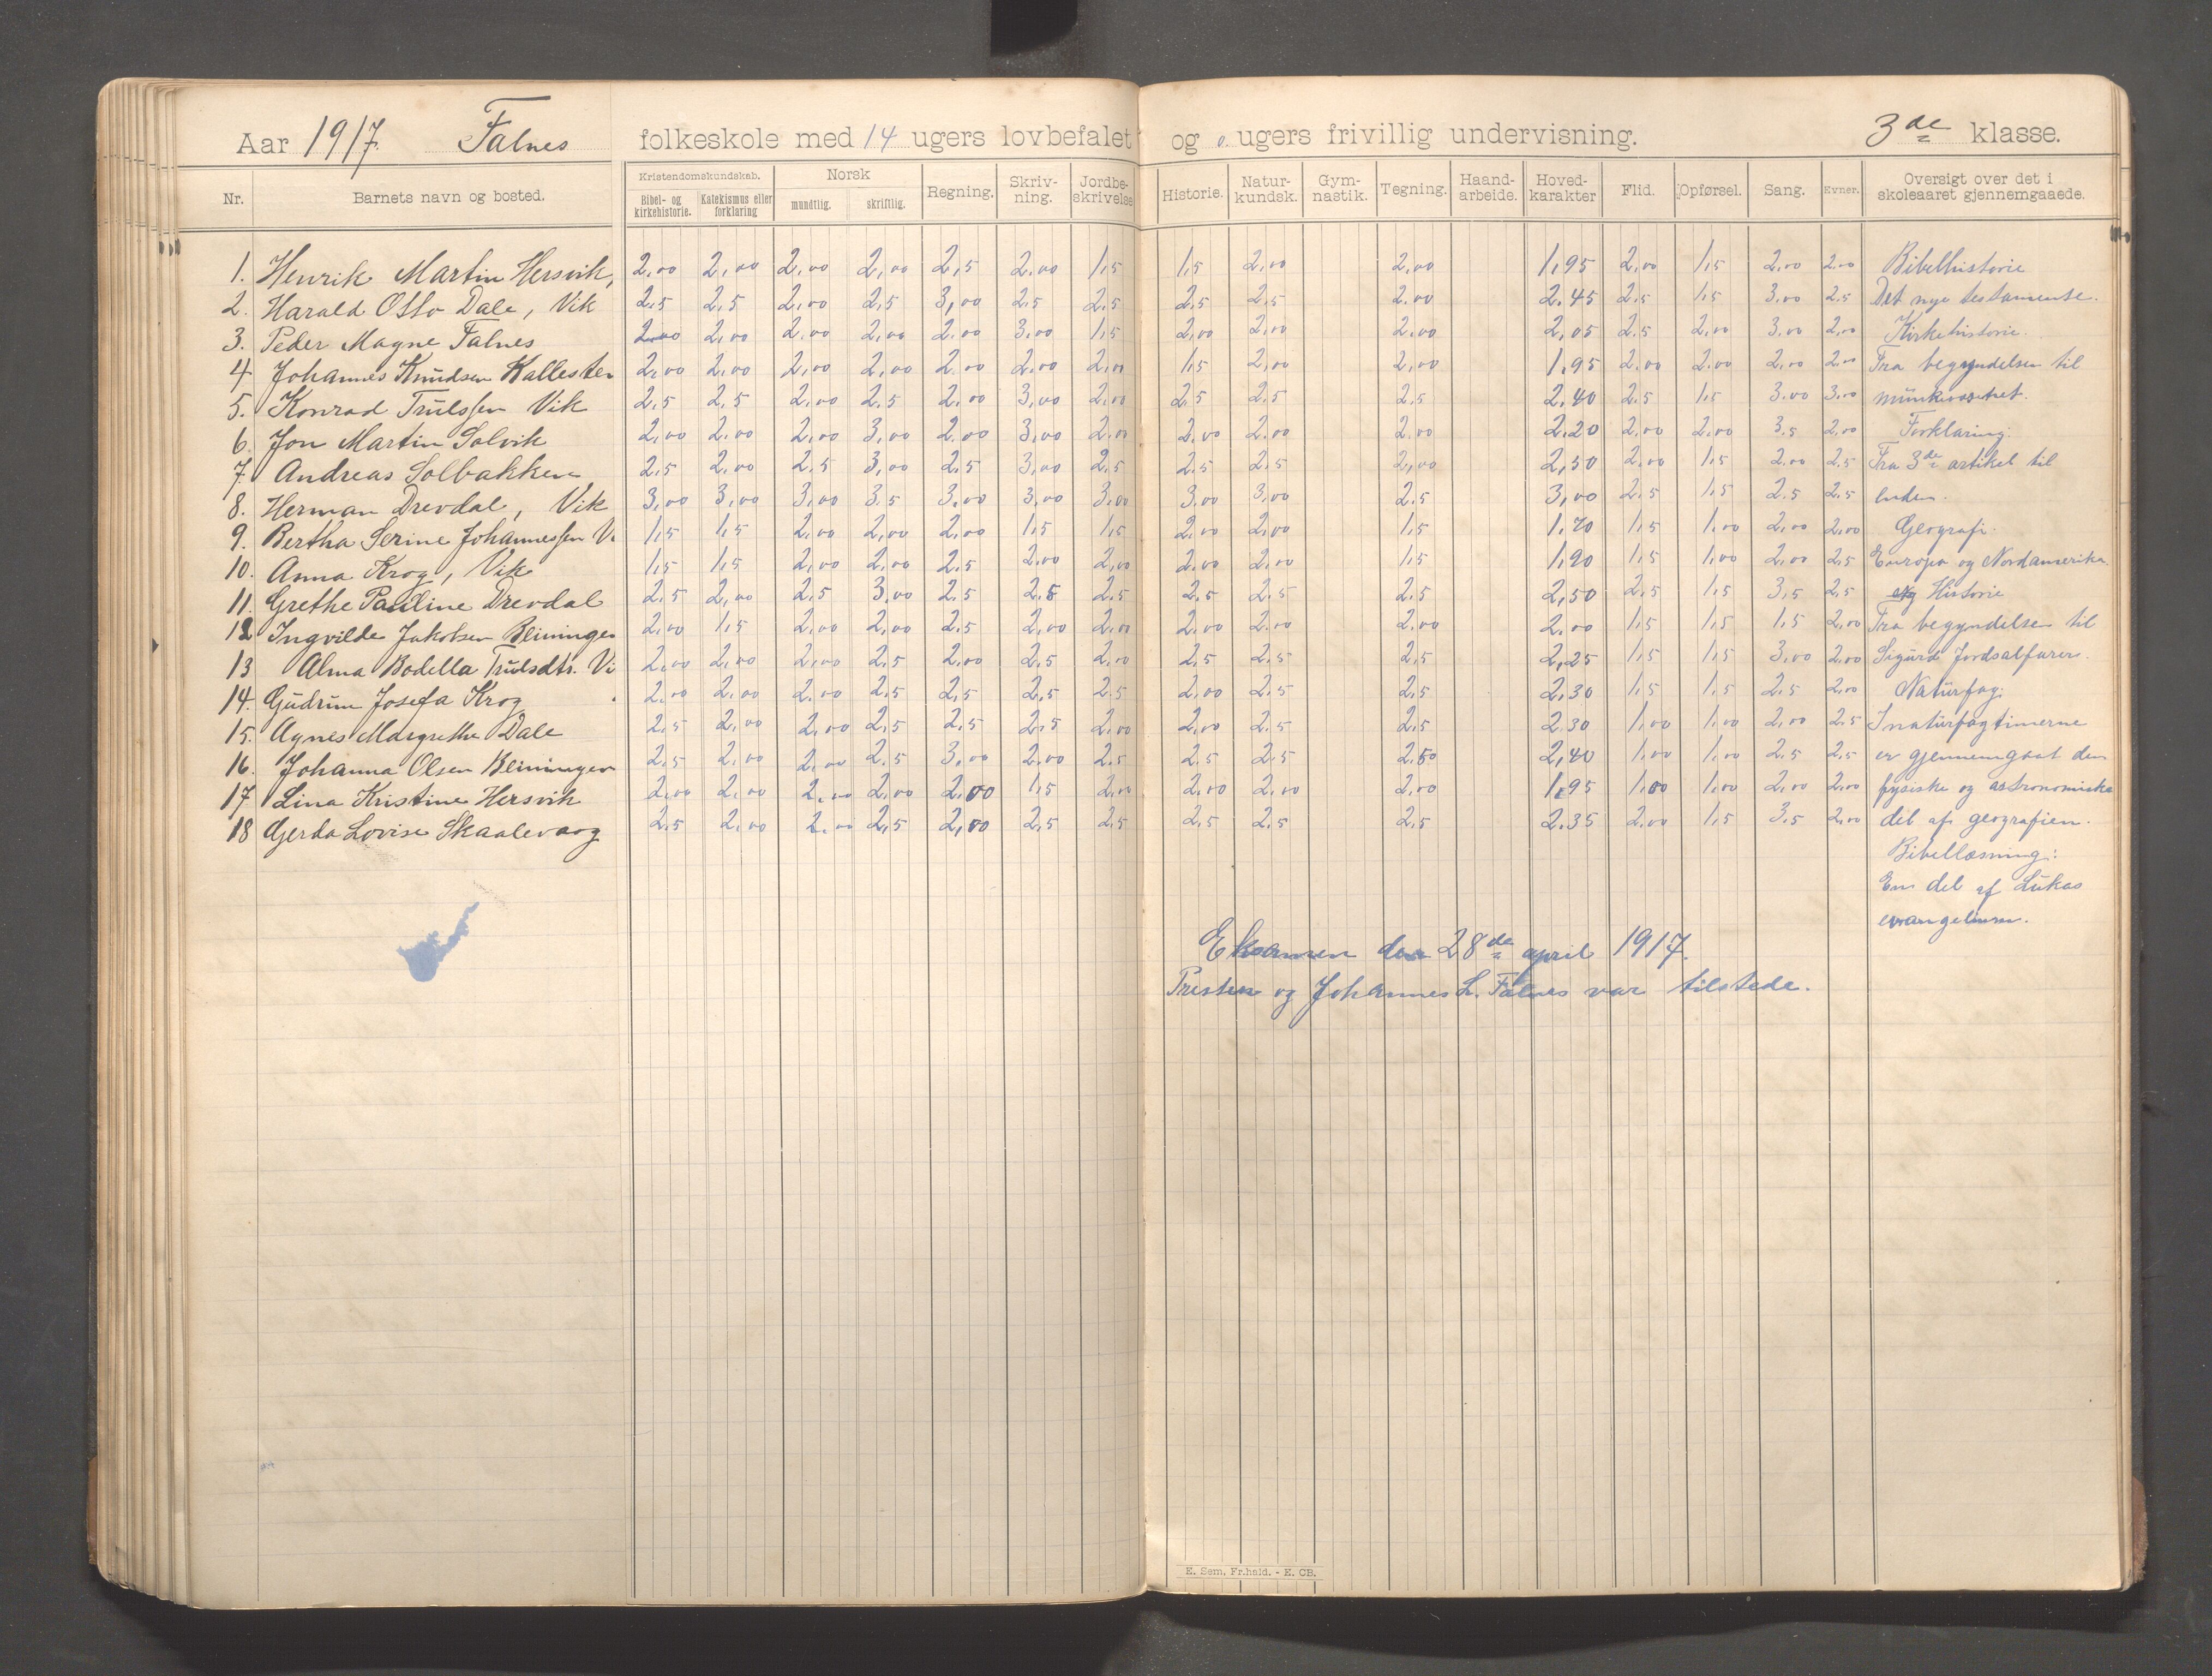 Aar 1917. Falnes folkeskole med 14 ugers lovbefalet og 0 ugers frivillig undervisning. 3de klasse.
Nr. Barnets navn og bosted. Kristendomskundskab. Bibel- og kirkehistorie. Katekismus eller forklaring Norsk mundtlig. skriftlig. Regning. Skriv-ning. Jordbe-skrivelse Historie. Natur-kundsk. Gym-nastik. Tegning. Haand-arbeide. Hoved-karakter Flid. Opførsel. Sang. Evner. Oversigt over det i skoleaaret gjennemgaaede.
1. Henrik Martin Hersvik, 2,00 2,00 2,00 2,00 2,5 2,00 1,5 1,5 2,00 2,00 1,95 2,00 1,5 2,00 2,00 Bibelhistorie
2. Harald Otto Dale, Vik 2,5 2,5 2,00 2,5 3,00 2,5 2,5 2,5 2,5 2,00 2,45 2,5 1,5 3,00 2,5 Det nye testamente.
3. Peder Magne Falnes 2,00 2,00 2,00 2,00 2,00 3,00 1,5 2,00 2,00 2,00 2,05 2,5 2,00 3,00 2,00 Kirkehistorie.
4 Johannes Knudsen Kallesten 2,00 2,00 2,00 2,00 2,00 2,00 2,00 1,5 2,00 2,00 1,95 2,00 2,00 2,00 2,00 Fra begyndelsen til
5. Konrad Trulssen Vik 2,5 2,5 2,00 2,5 2,00 3,00 2,00 2,5 2,5 2,5 2,40 2,5 1,5 3,00 3,00 munkevæsenet.
6. Jon Martin Solvik 2,00 2,00 2,00 3,00 2,00 3,00 2,00 2,00 2,00 2,00 2,20 2,00 2,00 3,5 2,00 Forklaring.
7. Andreas Solbakken 2,5 2,00 2,5 3,00 2,5 3,00 2,5 2,5 2,5 2,00 2,50 2,00 1,5 2,00 2,5 Fra 3de artikel til
8. Herman Drevdal, Vik 3,00 3,00 3,00 3,5 3,00 3,00 3,00 3,00 3,00 2,5 3,00 2,5 1,5 2,5 2,5 enden.
9. Bertha Serine Johannessen V. 1,5 1,5 2,00 2,00 2,00 1,5 1,5 2,00 2,00 1,5 1,70 1,5 1,00 2,00 2,00 Geografi.
10. Anna Krog, Vik 1,5 1,5 2,00 2,00 2,5 2,00 2,00 2,00 2,00 1,5 1,90 1,5 1,00 2,00 2,5 Europa og Nordamerika.
11. Grethe Pauline Drevdal 2,5 2,00 2,5 3,00 2,5 2,5 2,5 2,5 2,5 2,5 2,50 2,5 1,5 3,5 2,5 og Historie
12 Ingvilde Jakobsen Bleininger 2,00 1,5 2,00 2,00 2,5 2,00 2,00 2,00 2,00 2,00 2,00 1,5 1,5 1,5 2,00 Fra begyndelsen til
13 Alma Bodella Trulsdtr. Vi 2,00 2,00 2,00 2,5 2,00 2,5 2,00 2,5 2,5 2,5 2,25 1,5 1,5 3,00 2,00 Sigurd Jordsalfarer.
14. Gudrun Josefa Krog 2,00 2,00 2,00 2,5 2,5 2,5 2,5 2,00 2,5 2,5 2,30 1,5 1,5 2,5 2,00 Naturfag:
15. Agnes Margrethe Dale 2,5 2,00 2,00 2,5 2,5 2,5 2,00 2,00 2,5 2,5 2,30 1,00 1,00 2,00 2,5 I naturfagtimerne
16. Johanna Olsen Bleininger 2,5 2,00 2,00 2,5 3,00 2,00 2,5 2,5 2,5 2,50 2,40 1,00 1,00 2,5 2,5 er gjennemgaat den
17 Lina Kristine Hersvik 2,00 2,00 2,00 2,00 2,00 1,5 2,00 2,00 2,00 2,00 1,95 1,00 1,00 2,00 2,00 fysiske og astronomiske
18 Gjerda Lovise Skaalevaag 2,5 2,00 2,00 2,5 2,00 2,5 2,5 2,5 2,5 2,5 2,35 2,00 1,5 3,5 2,00 del af geografien.
Bibellæsning:
En del af Lukas
evangelium.
Eksamen den 28de april 1917.
Presten og Johannes L. Falnes var tilstede.
E. Sem, Fr.hald. - E. CB.